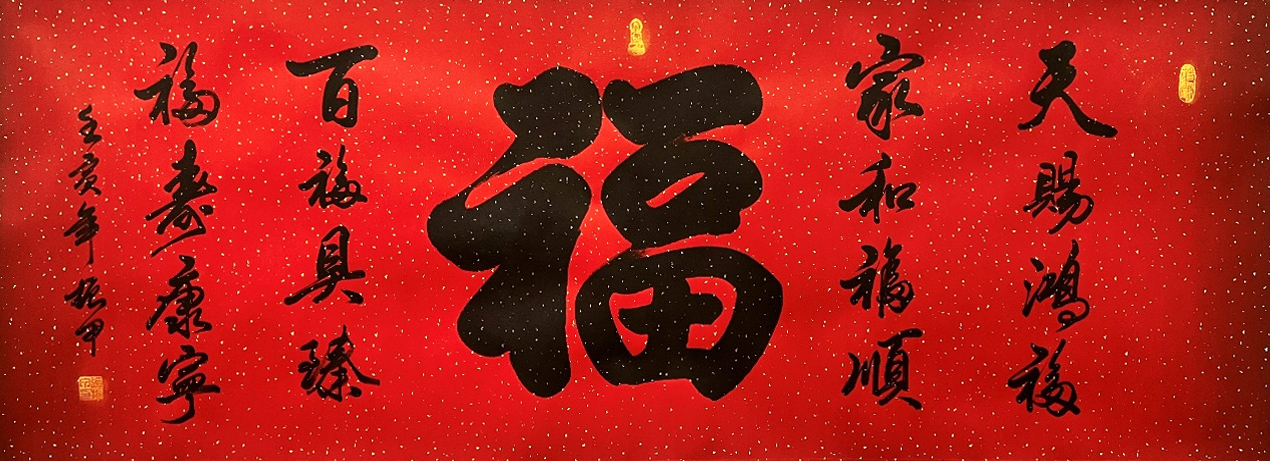 天赐鸿福
家和福順
福
百福具臻
福寿康宁
壬寅年振甲